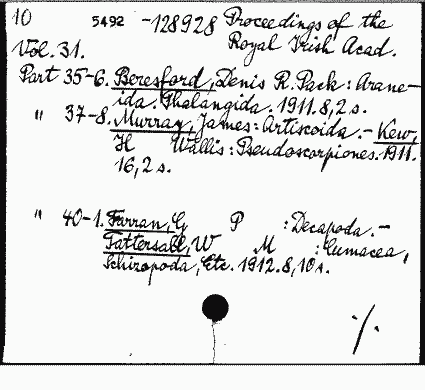 10 5492 -128928 Proceedings of the
Royal Irish Acad.
Vol. 31.
Part 35-6. Beresford, Denis R. Pack: Arane-
ida. Phalangida. 1911. 8, 2 s.
" 37-8. Murray, James: Artiscoida. - Kew,
H Wallis: Pseudoscorpiones. 1911.
16, 2 s.
" 40-1. Farran, G P : Decapoda. -
Tattersall, W M : Cumacea,
Schizopoda, Etc. 1912. 8, 10 s.
./.